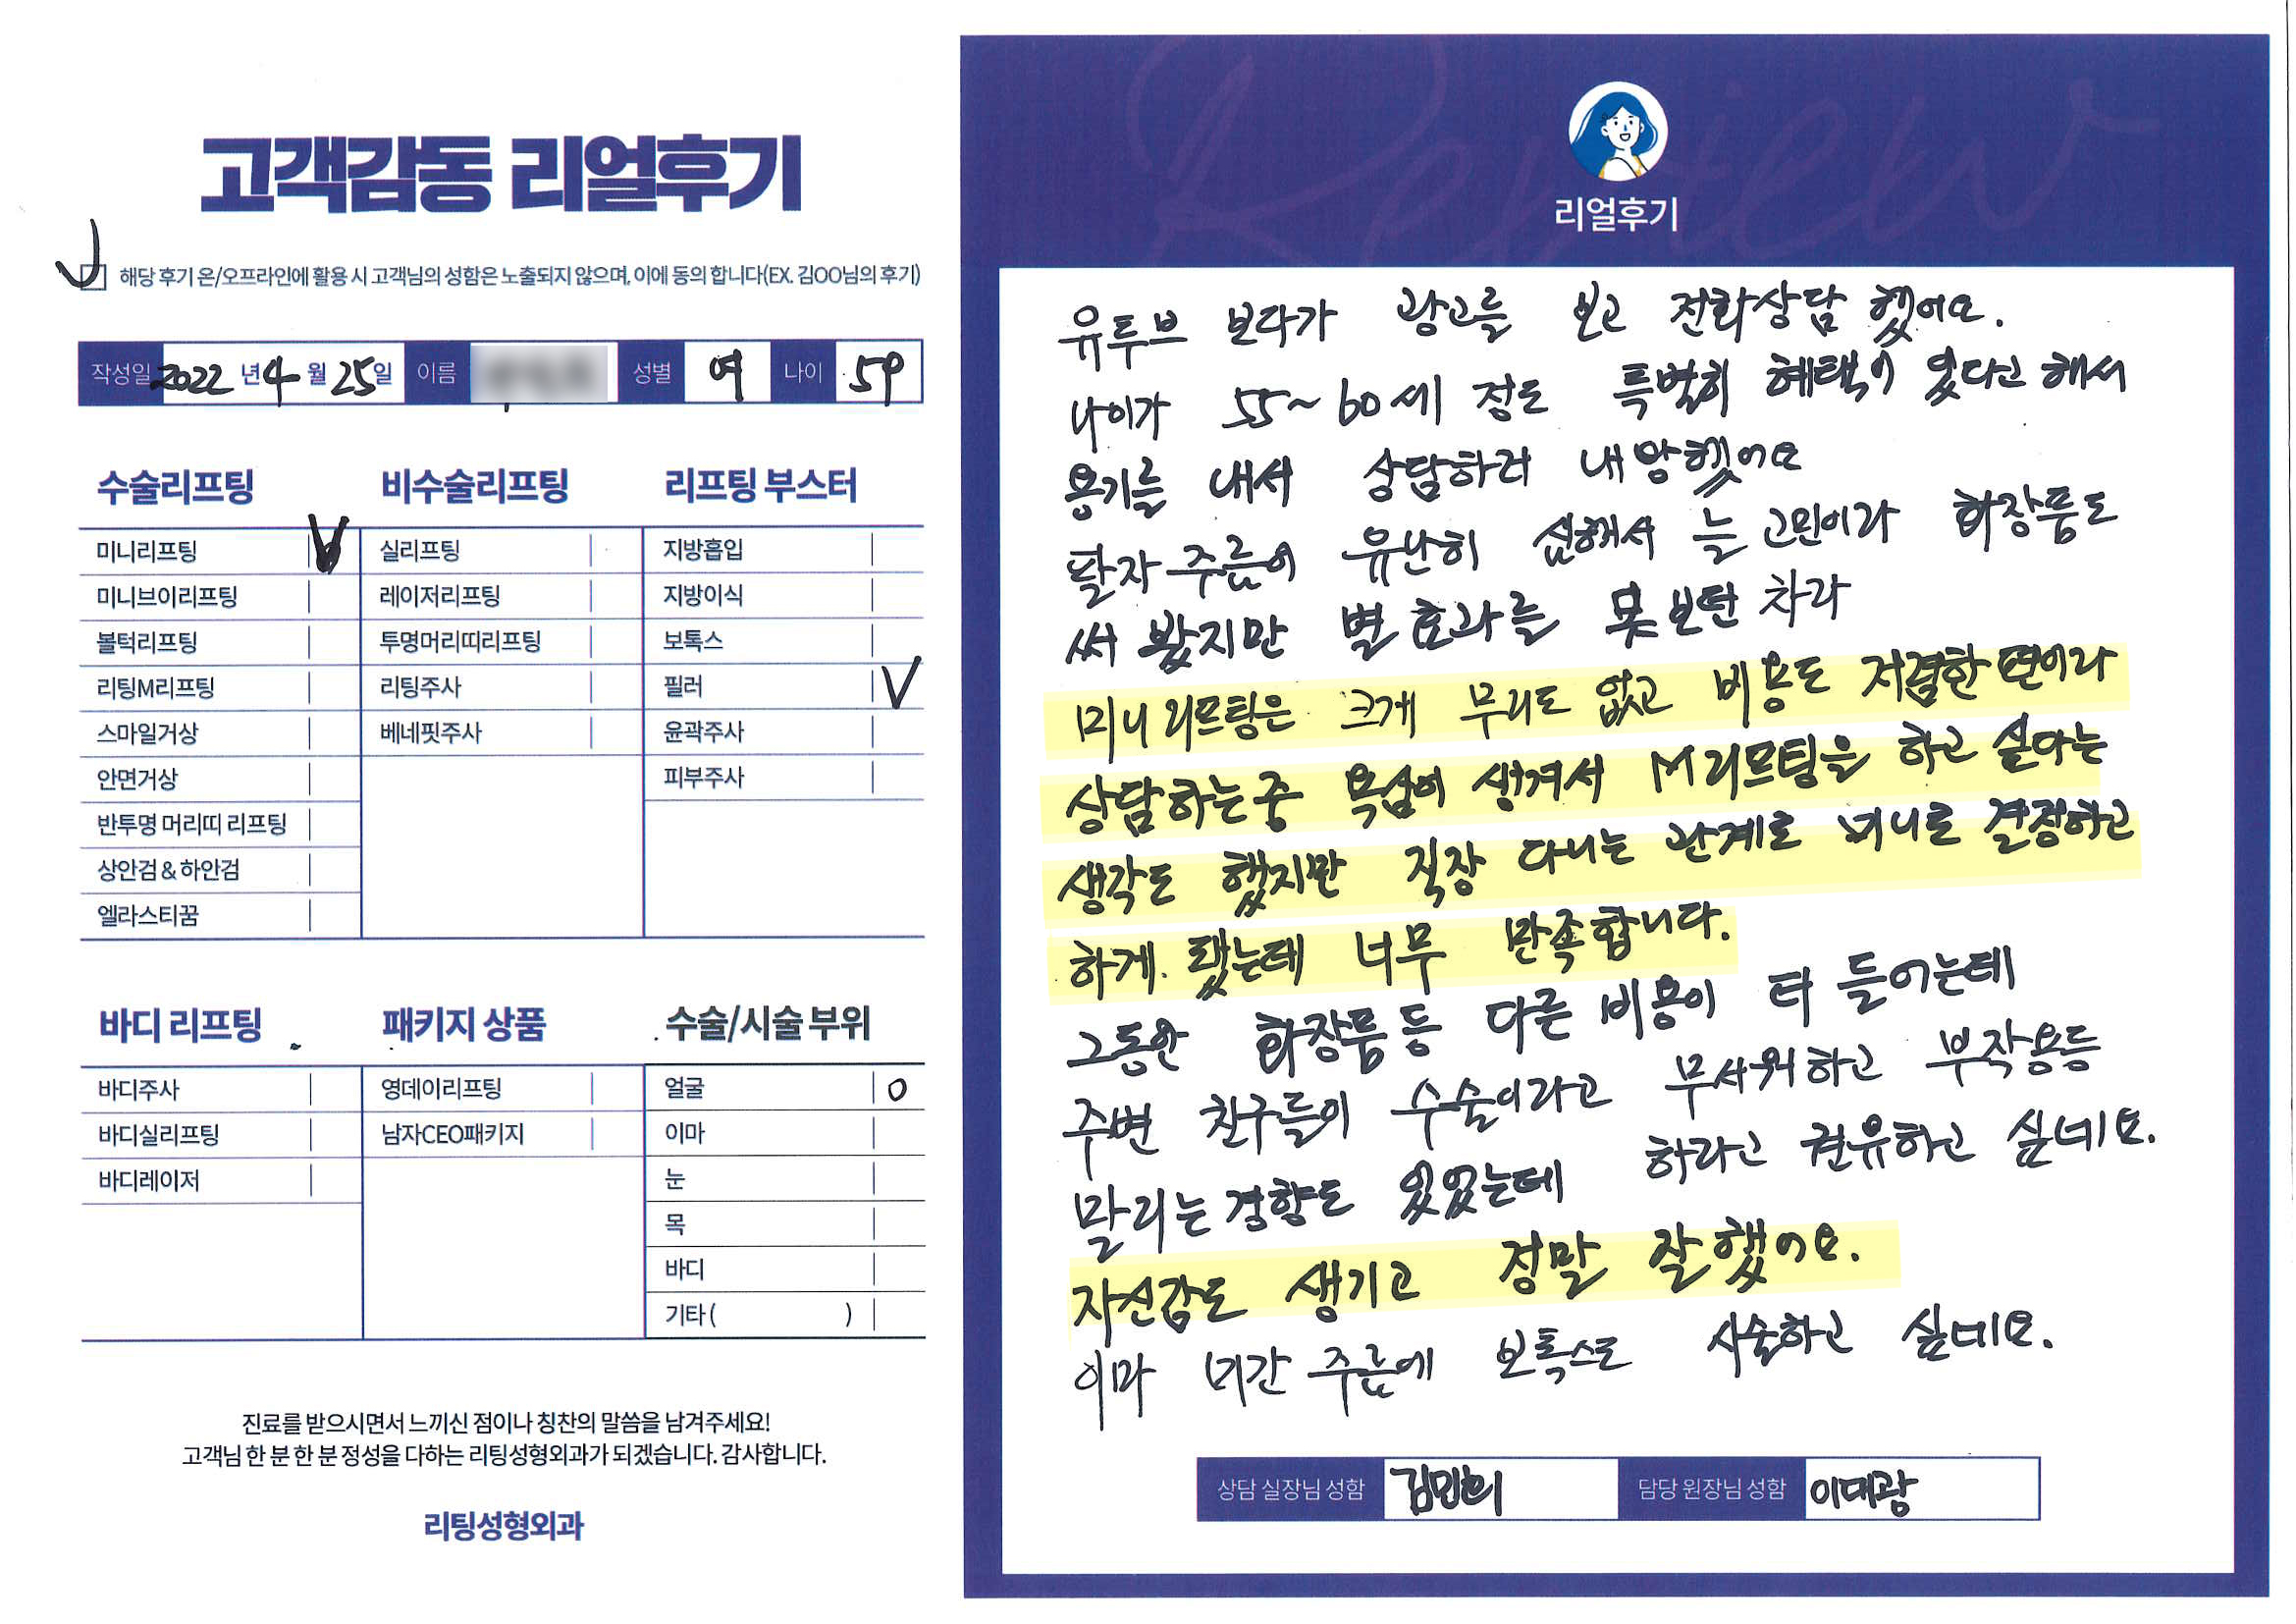 고객감동 리얼후기
해당 후기 온/오프라인에 활용 시 고객님의 성함은 노출되지 않으며, 이에 동의 합니다(EX. 김OO님의 후기)
작성일 2022 년 4 월 25 일 이름 성별 여 나이 59
수술리프팅 비수술리프팅 리프팅 부스터
미니리프팅 V 실리프팅 지방흡입
미니브이리프팅 레이저리프팅 지방이식
볼턱리프팅 투명머리띠리프팅 보톡스
리팅M리프팅 리팅주사 필러 V
스마일거상 베네핏주사 윤곽주사
안면거상 피부주사
반투명 머리띠 리프팅
상안검 & 하안검
엘라스티꿈
바디 리프팅 패키지 상품 수술/시술 부위
바디주사 영데이리프팅 얼굴 O
바디실리프팅 남자CEO패키지 이마
바디레이저 눈
목
바디
기타 ( )
진료를 받으시면서 느끼신 점이나 칭찬의 말씀을 남겨주세요!
고객님 한 분 한 분 정성을 다하는 리팅성형외과가 되겠습니다. 감사합니다.
리팅성형외과
Review
리얼후기
유투브 보다가 광고를 보고 전화상담 했어요.
나이가 55~60세 정도 특별히 혜택이 있다고 해서
용기를 내서 상담하러 내왕했어요
팔자 주름이 유난히 심해서 늘 고민이라 화장품도
써 봤지만 별 효과를 못 보던 차라
미니 리프팅은 크게 무리도 없고 비용도 저렴한 편이라
상담하는중 욕심이 생겨서 M리프팅을 하고 싶다는
생각도 했지만 직장 다니는 관계로 미니로 결정하고
하게. 됐는데 너무 만족합니다.
그동안 화장품등 다른 비용이 더 들어는데
주변 친구들이 수술이라고 무서워하고 부작용등
말리는 경향도 있었는데 하라고 권유하고 싶네요.
자신감도 생기고 정말 잘했어요.
이마 미간 주름에 보톡스도 시술하고 싶네요.
상담 실장님 성함 김민희 담당 원장님 성함 이대광